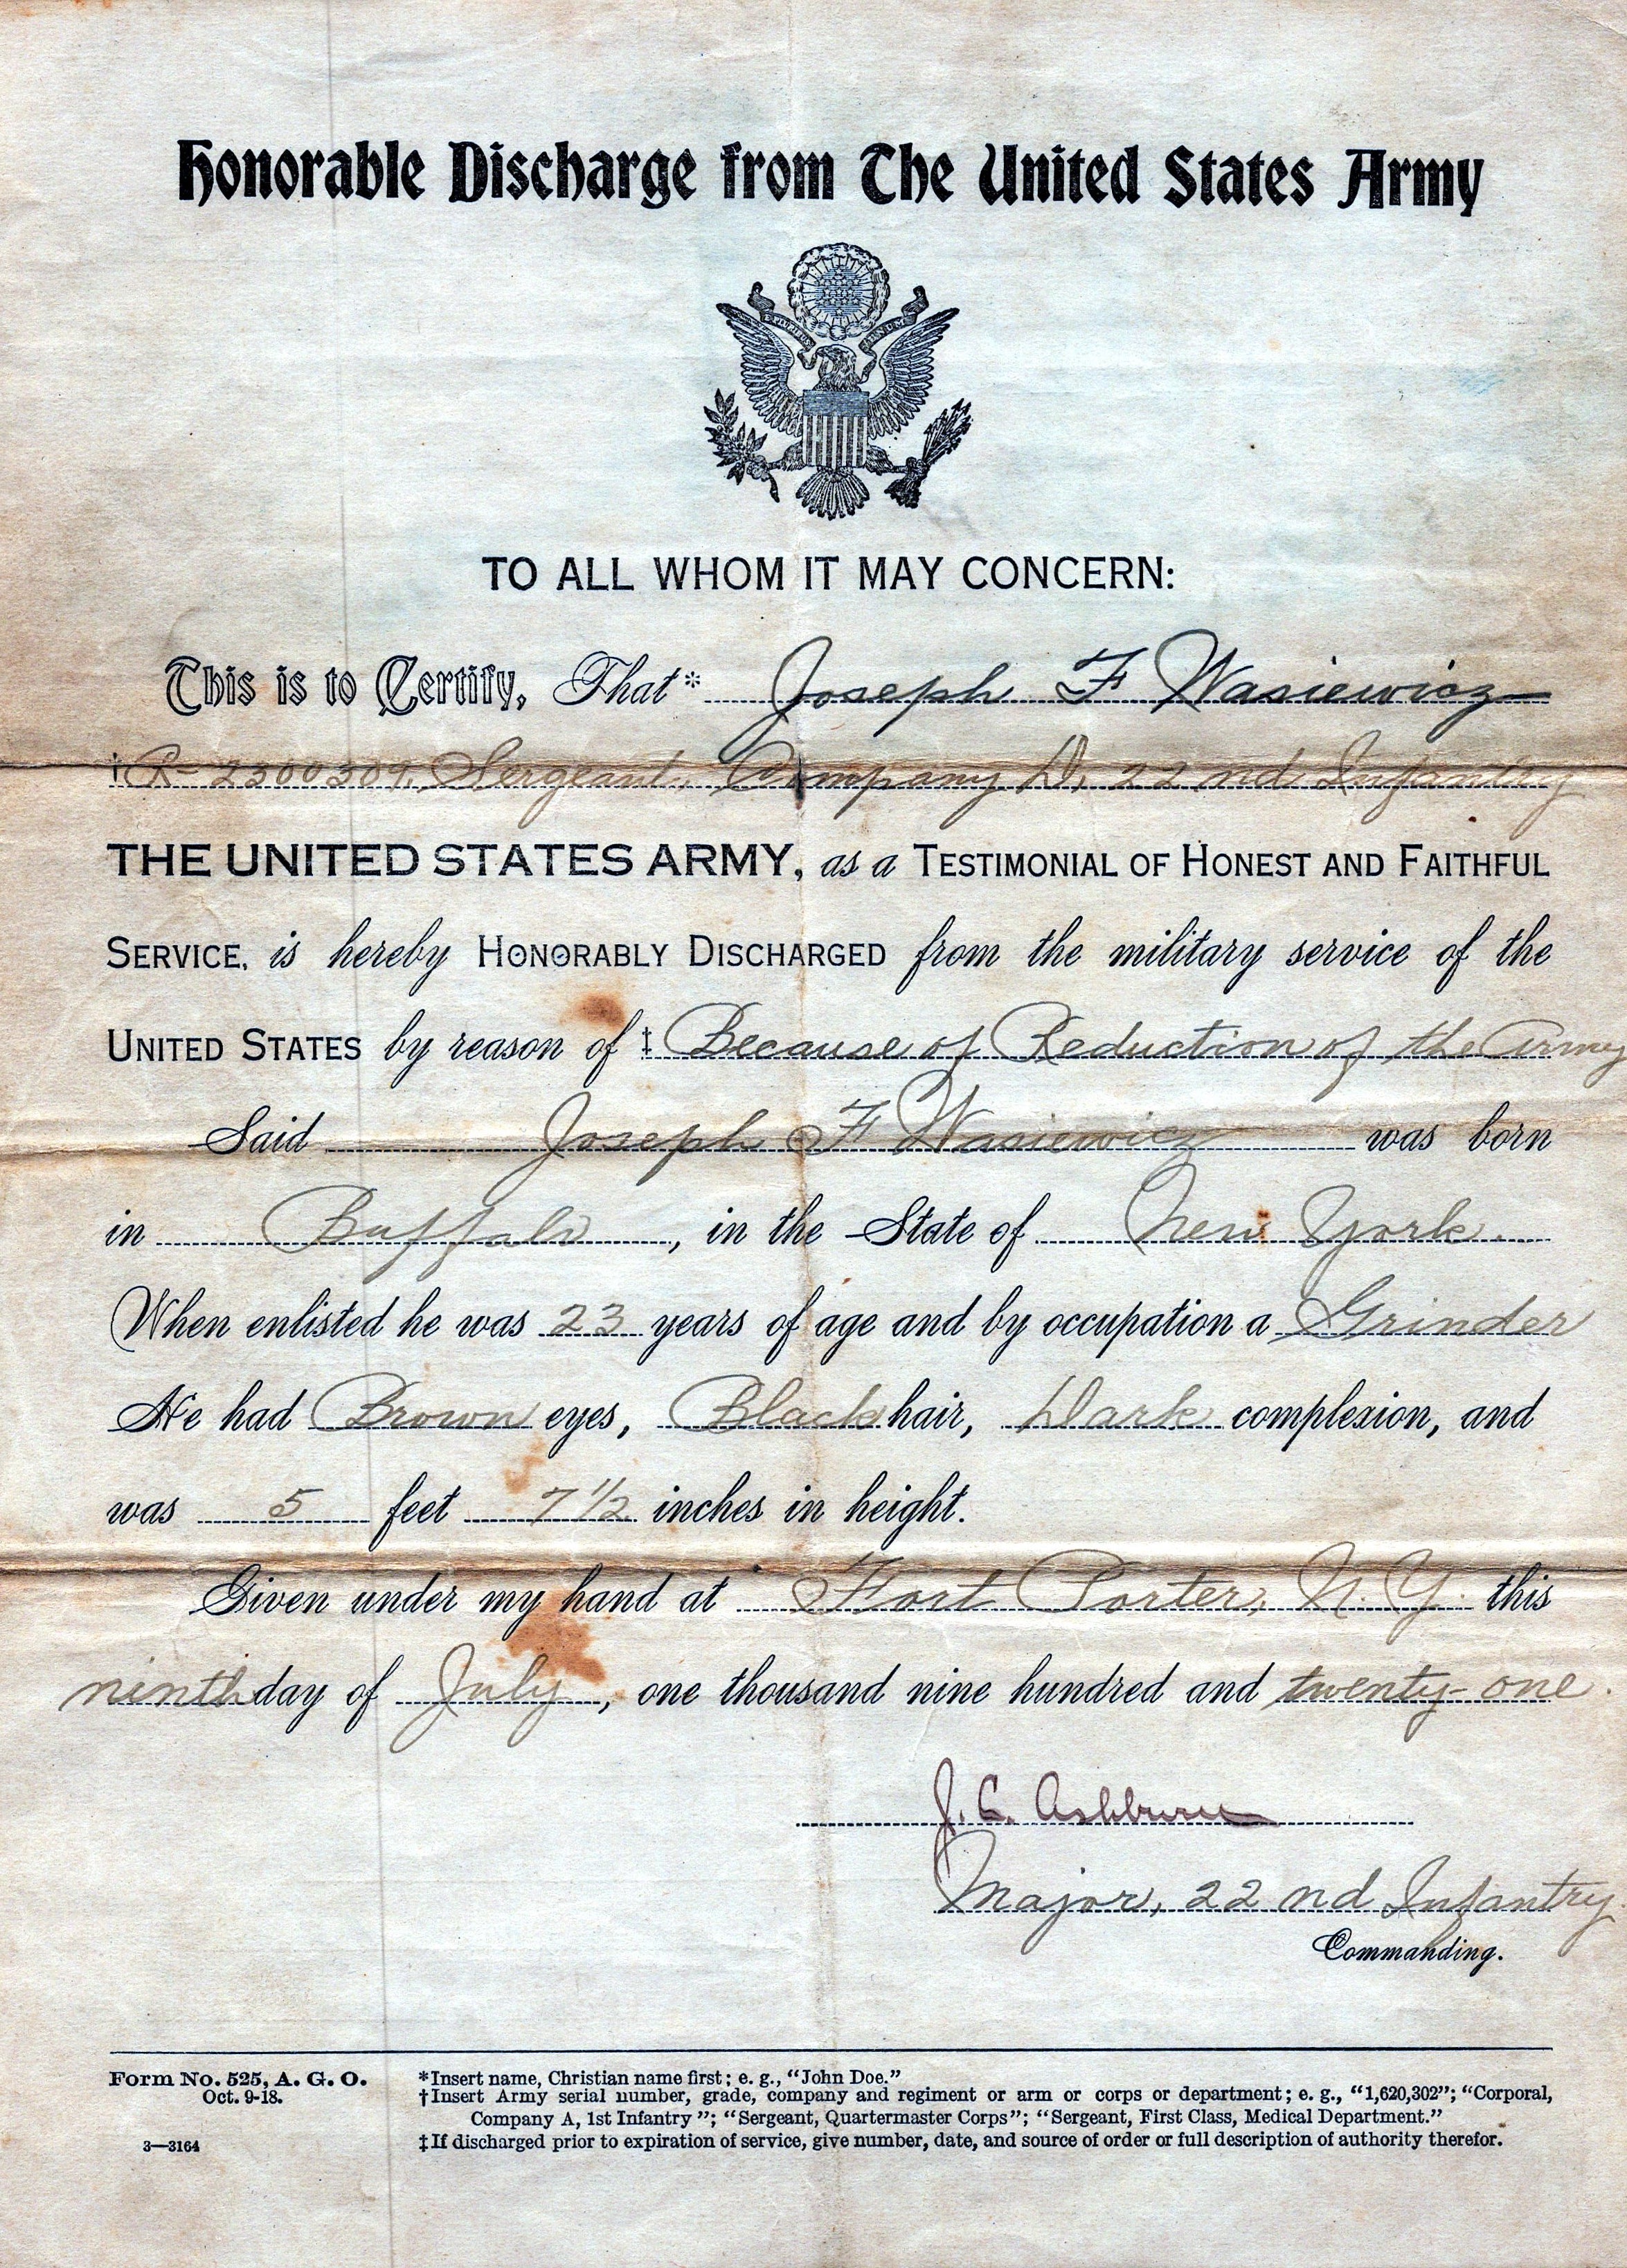 Honorable Discharge from The United States Army
TO ALL WHOM IT MAY CONCERN:
This is to Certify, That* Joseph F Wasiewicz
†R-2300309, Sergeant, Company D, 22nd Infantry
THE UNITED STATES ARMY, as a TESTIMONIAL OF HONEST AND FAITHFUL
SERVICE, is hereby HONORABLY DISCHARGED from the military service of the
UNITED STATES by reason of ‡ Because of Reduction of the Army
Said Joseph F Wasiewicz was born
in Buffalo, in the State of New York.
When enlisted he was 23 years of age and by occupation a Grinder
He had Brown eyes, Black hair, Dark complexion, and
was 5 feet 7 1/2 inches in height.
Given under my hand at Fort Porter, N.Y. this
ninth day of July, one thousand nine hundred and twenty-one.
J. C. Ashburn
Major, 22nd Infantry
Commanding.
Form No. 525, A. G. O.
Oct. 9-18.
3—3164
*Insert name, Christian name first; e. g., "John Doe."
†Insert Army serial number, grade, company and regiment or arm or corps or department; e. g., "1,620,302"; "Corporal,
Company A, 1st Infantry"; "Sergeant, Quartermaster Corps"; "Sergeant, First Class, Medical Department."
‡If discharged prior to expiration of service, give number, date, and source of order or full description of authority therefor.